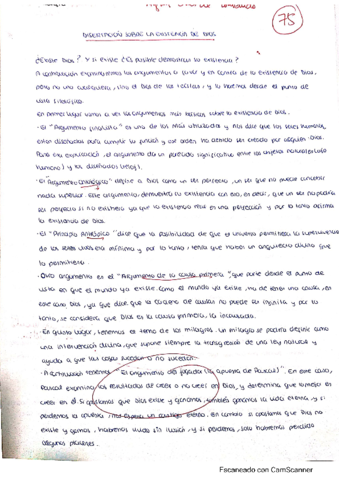 75
DISERTACIÓN SOBRE LA EXISTENCIA DE DIOS
¿Existe Dios? Y si existe ¿Es posible demostrar su existencia?
A continuación examinaremos los argumentos a favor y en contra de la existencia de Dios,
pero no uno cualquiera, sino el Dios de los teístas, y lo haremos desde el punto de
vista filosófico.
En primer lugar vamos a ver los argumentos más básicos sobre la existencia de Dios.
· El "Argumento es uno de los más y nos dice que los seres humanos,
están diseñados para cumplir su función y ese orden no ha sido creado por
Para esa explicación, el argumento da un parecido significativo entre los objetos naturales (ojo
humano) y los diseñados (reloj).
· El "Argumento Ontológico" define a Dios como un ser perfecto, un ser que no puede concebirse
nada superior. Este argumento, demuestra su existencia con eso, es decir, que un ser no podría
ser perfecto si no existiera ya que la existencia es una perfección y por lo tanto afirma
la existencia de Dios.
· El "Principio Antrópico" dice que la posibilidad de que el universo permitiera la supervivencia
de los seres vivos era mínima y, por lo tanto, tenía que haber un arquitecto divino que
lo permitiera.
· Otro argumento es el "Argumento de la causa primera", que parte desde el punto de
vista en que el mundo ya existe como el mundo ya existe, ha de tener una causa, en
este caso Dios, ya que dice que la cadena de causas no puede ser infinita y por lo
tanto, se considera que Dios es la causa primera, la incausada.
· En quinto lugar, tenemos el tema de los milagros. Un milagro se podría definir como
una intervención divina, que supone siempre la transgresión de una ley natural y
ayuda a que las cosas sucedan o no sucedan.
· A continuación tenemos "El argumento del jugador (la apuesta de Pascal)". En este caso,
Pascal examina los resultados de creer o no creer en Dios, y determina que lo mejor es
creer en él. Si apostamos que Dios existe y ganamos, también ganamos la vida eterna y si
perdemos la apuesta, no. En cambio si apostamos que Dios no
existe y ganamos, habremos vivido sin ilusión, y si perdemos, solo habremos perdido
algunos placeres.
Escaneado con CamScanner